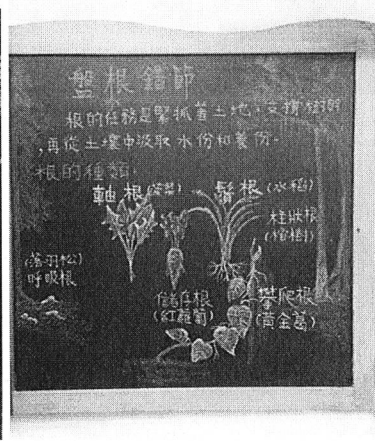 盤根錯節
根的任務是緊抓著土地,支撐樹幹
,再從土壤中汲取水份和養份。
根的種類:
軸根(菠菜)
鬚根(水稻)
柱狀根
(榕樹)
(落羽松)
呼吸根
儲存根
(紅蘿蔔)
攀爬根
(黃金葛)